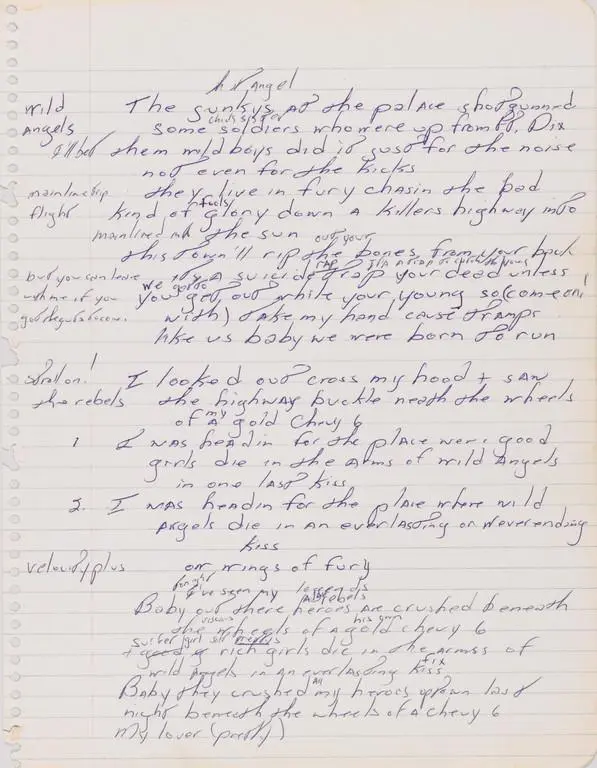 Angel
wild The gunkys at the palace shotgunned
chick's sister
Angels some soldiers who were up from Ft. Dix
I'll bet them wild boys did it just for the noise
not even for the kicks
mainline trip they live in fury chasin the bad
fools
flight kind of glory down a killers highway into
mainlined the sun
out your
this town'll rip the bones from your back
but you can leave its a suicide trap your dead unless
we gotta
with me if you you get out while your young so (come on!
with) take my hand cause tramps
like us baby we were born to run
stroll on! I looked out cross my hood + saw
the rebels the highway buckle neath the wheels
my
of a gold Chevy 6
1. I was headin for the place were good
girls die in the arms of wild Angels
in one last kiss
2. I was headin for the place where wild
angels die in an everlasting or neverending
kiss
velocity plus on wings of fury
tonight I've seen my
rebels
Baby out there heroes are crushed beneath
the wheels of a gold chevy 6
+ good rich girls die in the armss of
fix
wild Angels in an everlasting kiss
All
Baby they crushed my heroes uptown last
night beneath the wheels of a Chevy 6
My lover (pretty)